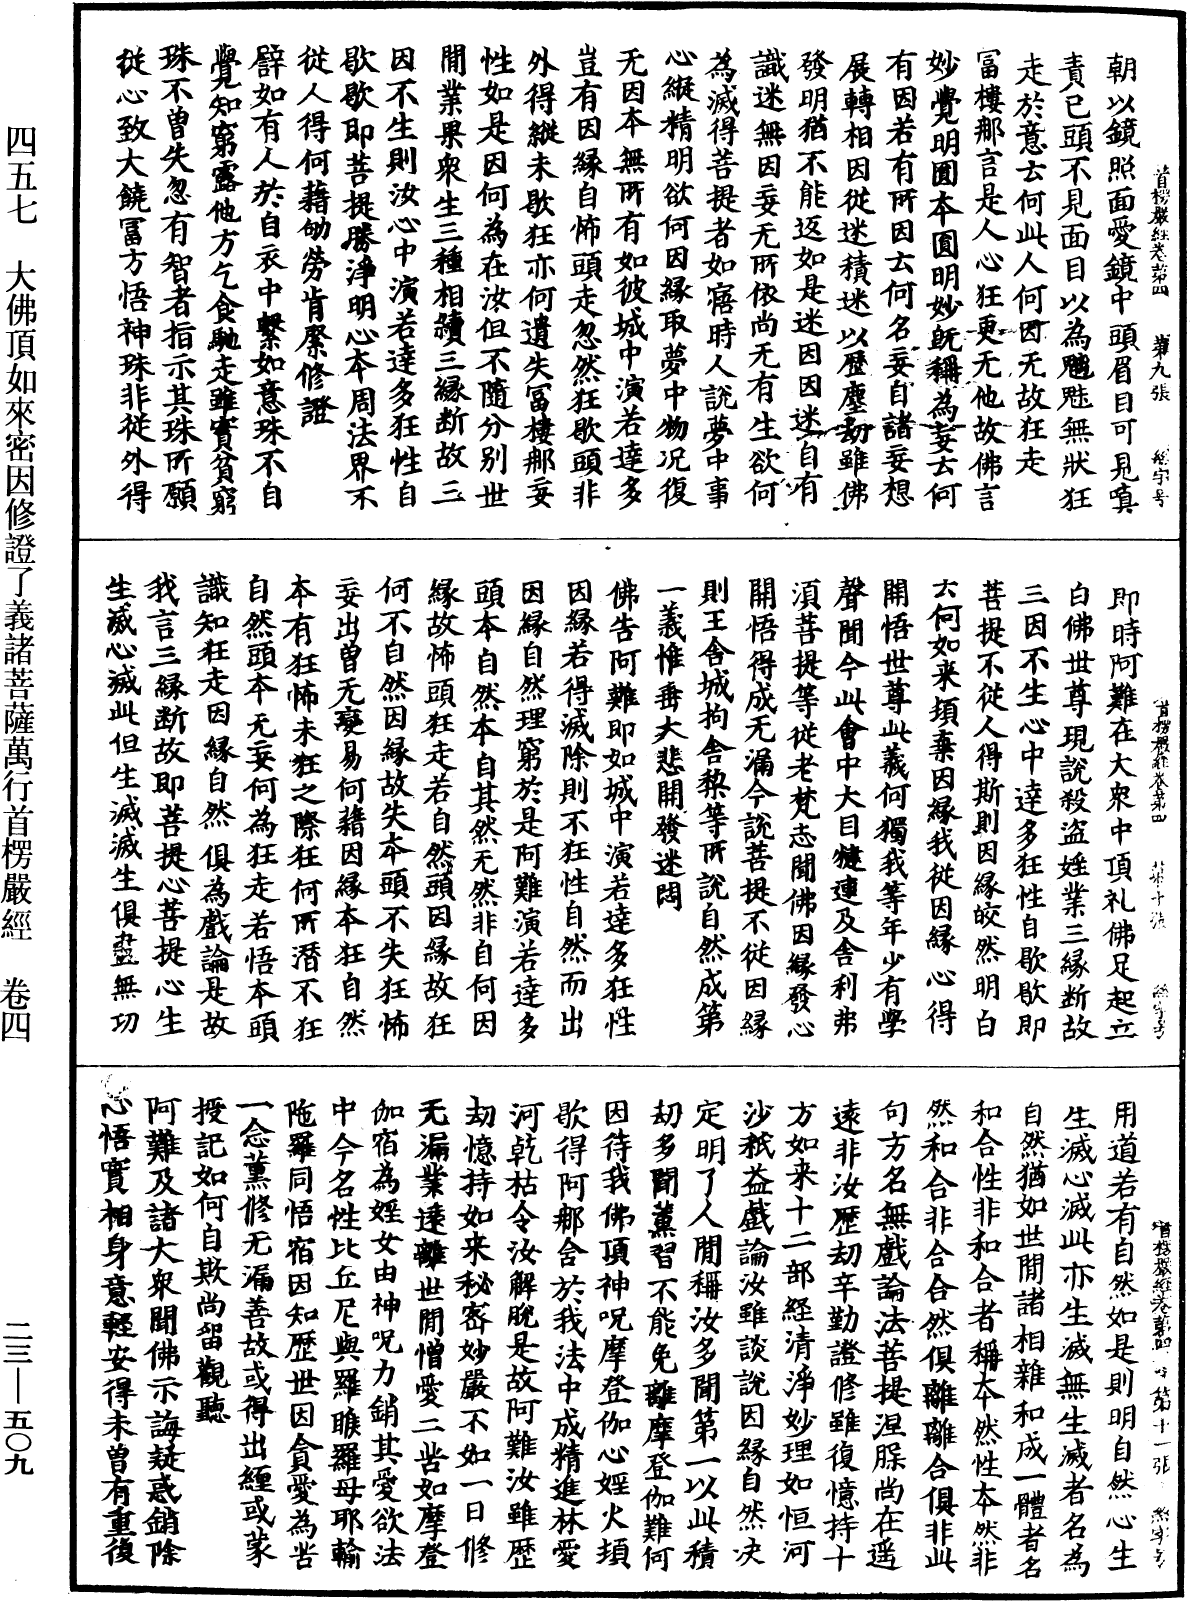 朝以鏡照面愛鏡中頭眉目可見嗔
責已頭不見面目以為魑魅無狀狂
走於意云何此人何因无故狂走
冨樓那言是人心狂更无他故佛言
妙覺明圓本圓明妙旣稱為妄云何
有因若有所因云何名妄自諸妄想
展轉相因從迷積迷以歷塵劫雖佛
發明猶不能返如是迷因因迷自有
識迷無因妄无所依尚无有生欲何
為滅得菩提者如寤時人說夢中事
心縱精明欲何因緣取夢中物况復
无因本無所有如彼城中演若達多
豈有因緣自怖頭走忽然狂歇頭非
外得縱未歇狂亦何遺失冨樓那妄
性如是因何為在汝但不隨分別世
閒業果衆生三種相續三緣斷故三
因不生則汝心中演若達多狂性自
歇歇即菩提勝淨明心本周法界不
從人得何藉劬勞肯綮修證
譬如有人於自衣中繫如意珠不自
覺知窮露他方乞食馳走雖實貧窮
珠不曽失忽有智者指示其珠所願
從心致大饒冨方悟神珠非從外得
即時阿難在大衆中頂礼佛足起立
白佛世尊現說殺盜婬業三緣斷故
三因不生心中達多狂性自歇歇即
菩提不從人得斯則因緣皎然明白
云何如来頓棄因緣我從因緣心得
開悟世尊此義何獨我等年少有學
聲聞今此會中大目犍連及舍利弗
湏菩提等從老梵志聞佛因緣發心
開悟得成无漏今說菩提不從因緣
則王舍城拘舍梨等所說自然成第
一義惟垂大悲開發迷悶
佛告阿難即如城中演若達多狂性
因緣若得滅除則不狂性自然而出
因緣自然理窮於是阿難演若達多
頭本自然本自其然无然非自何因
緣故怖頭狂走若自然頭因緣故狂
何不自然因緣故失本頭不失狂怖
妄出曽无變易何藉因緣本狂自然
本有狂怖未狂之際狂何所潛不狂
自然頭本无妄何為狂走若悟本頭
識知狂走因緣自然俱為戲論是故
我言三緣斷故即菩提心菩提心生
生滅心滅此但生滅滅生俱盡無功
用道若有自然如是則明自然心生
生滅心滅此亦生滅無生滅者名為
自然猶如世閒諸相雜和成一體者名
和合性非和合者稱本然性本然非
然和合非合合然俱離離合俱非此
句方名無戲論法菩提涅槃尚在遥
遠非汝歷劫辛勤證修雖復憶持十
方如来十二部經清淨妙理如恒河
沙秖益戲論汝雖談說因緣自然决
定明了人閒稱汝多聞第一以此積
劫多聞薰習不能免離摩登伽難何
因待我佛頂神呪摩登伽心婬火頓
歇得阿那含於我法中成精進林愛
河乾枯令汝解脫是故阿難汝雖歷
劫憶持如来秘密妙嚴不如一日修
无漏業遠離世閒憎愛二苦如摩登
伽宿為婬女由神呪力銷其愛欲法
中今名性比丘尼與羅睺羅母耶輸
陁羅同悟宿因知歷世因貪愛為苦
一念薰修无漏善故或得出纏或蒙
授記如何自欺尚留觀聽
阿難及諸大衆聞佛示誨疑惑銷除
心悟實相身意輕安得未曽有重復
首楞嚴經卷第四 第九張
首楞嚴經卷第四
首楞嚴經卷第四 第十一張
四五七 大佛頂如來密因修證了義諸菩薩萬行首楞嚴經 卷四 二三—五〇九